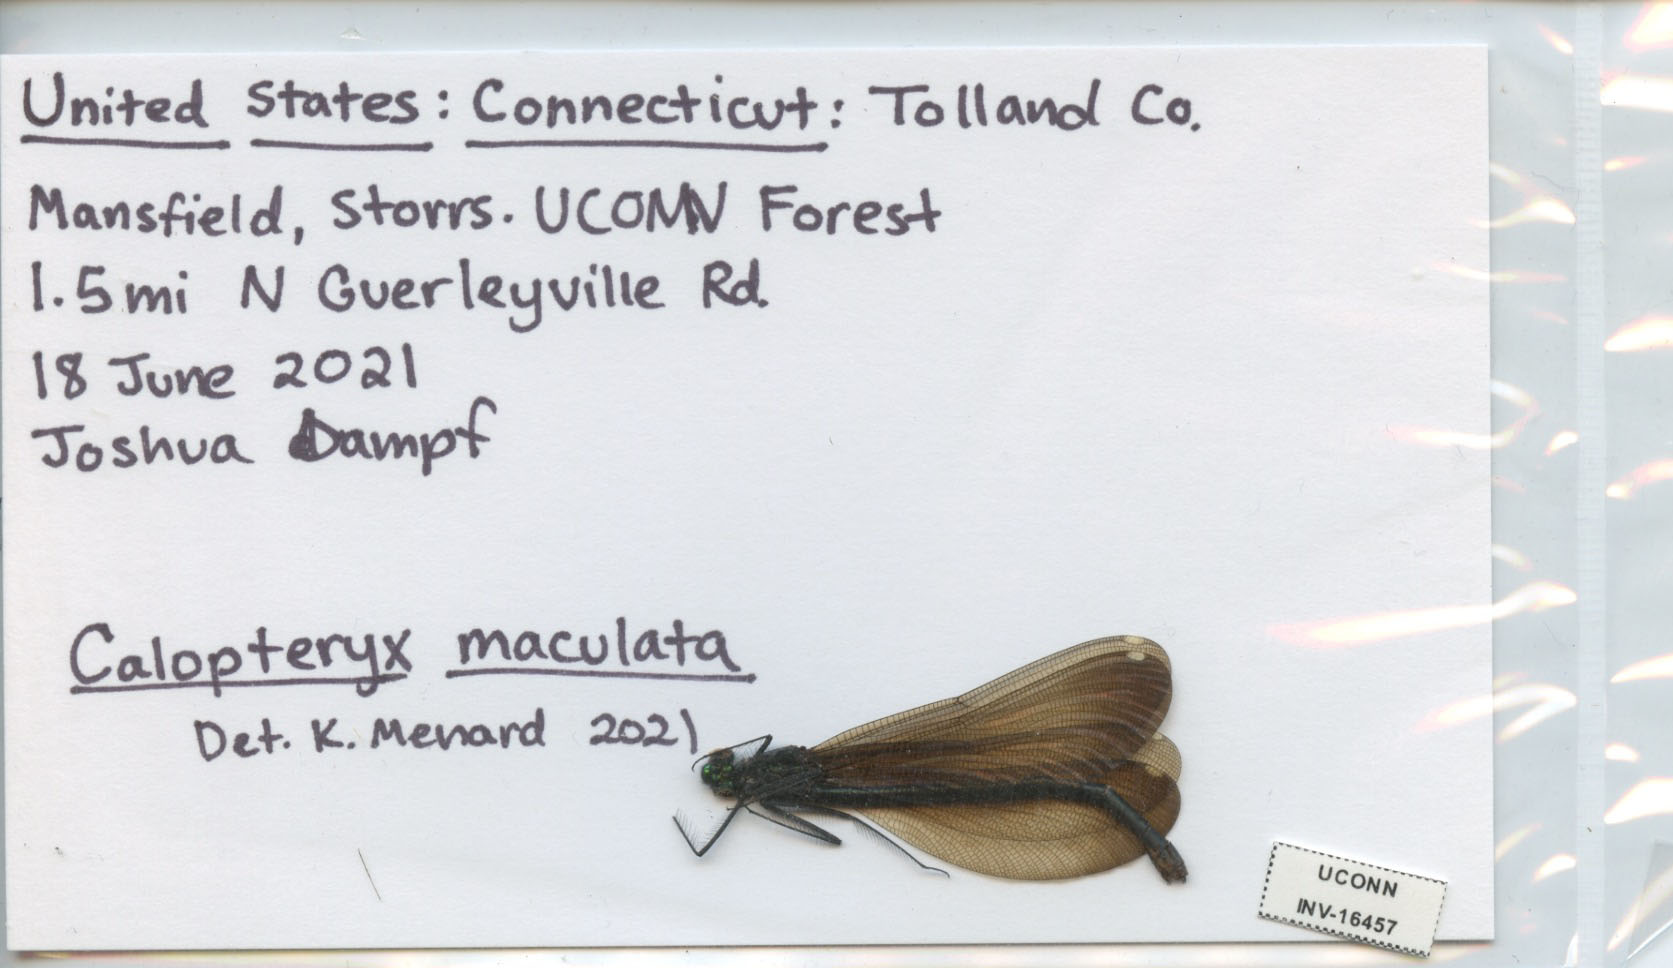 United States: Connecticut: Tolland Co.
Mansfield, Storrs. UCONN Forest
1.5mi N Guerleyville Rd.
18 June 2021
Joshua Dampf
Calopteryx maculata
Det. K. Menard 2021
UCONN
INV-16457